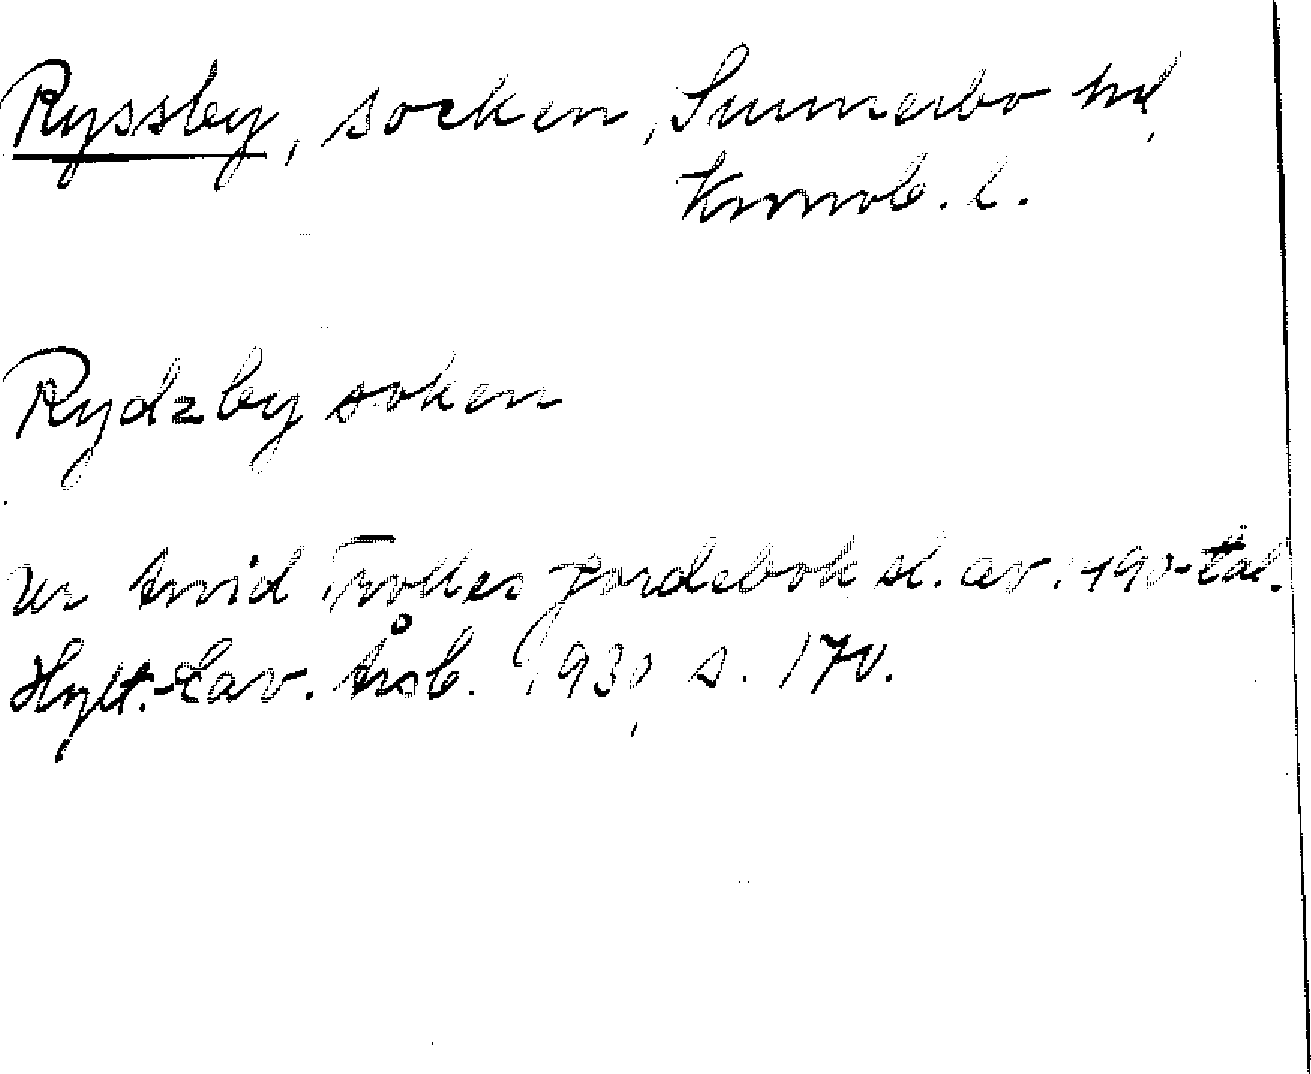 Ryssby, socken, Sunnerbo hd,
Kronob. l.
Rydzby soken
Ur Arvid Trolles jordebok sl. av 1490-tal.
Hylt.-Cav. Årsb. 1930, s. 170.